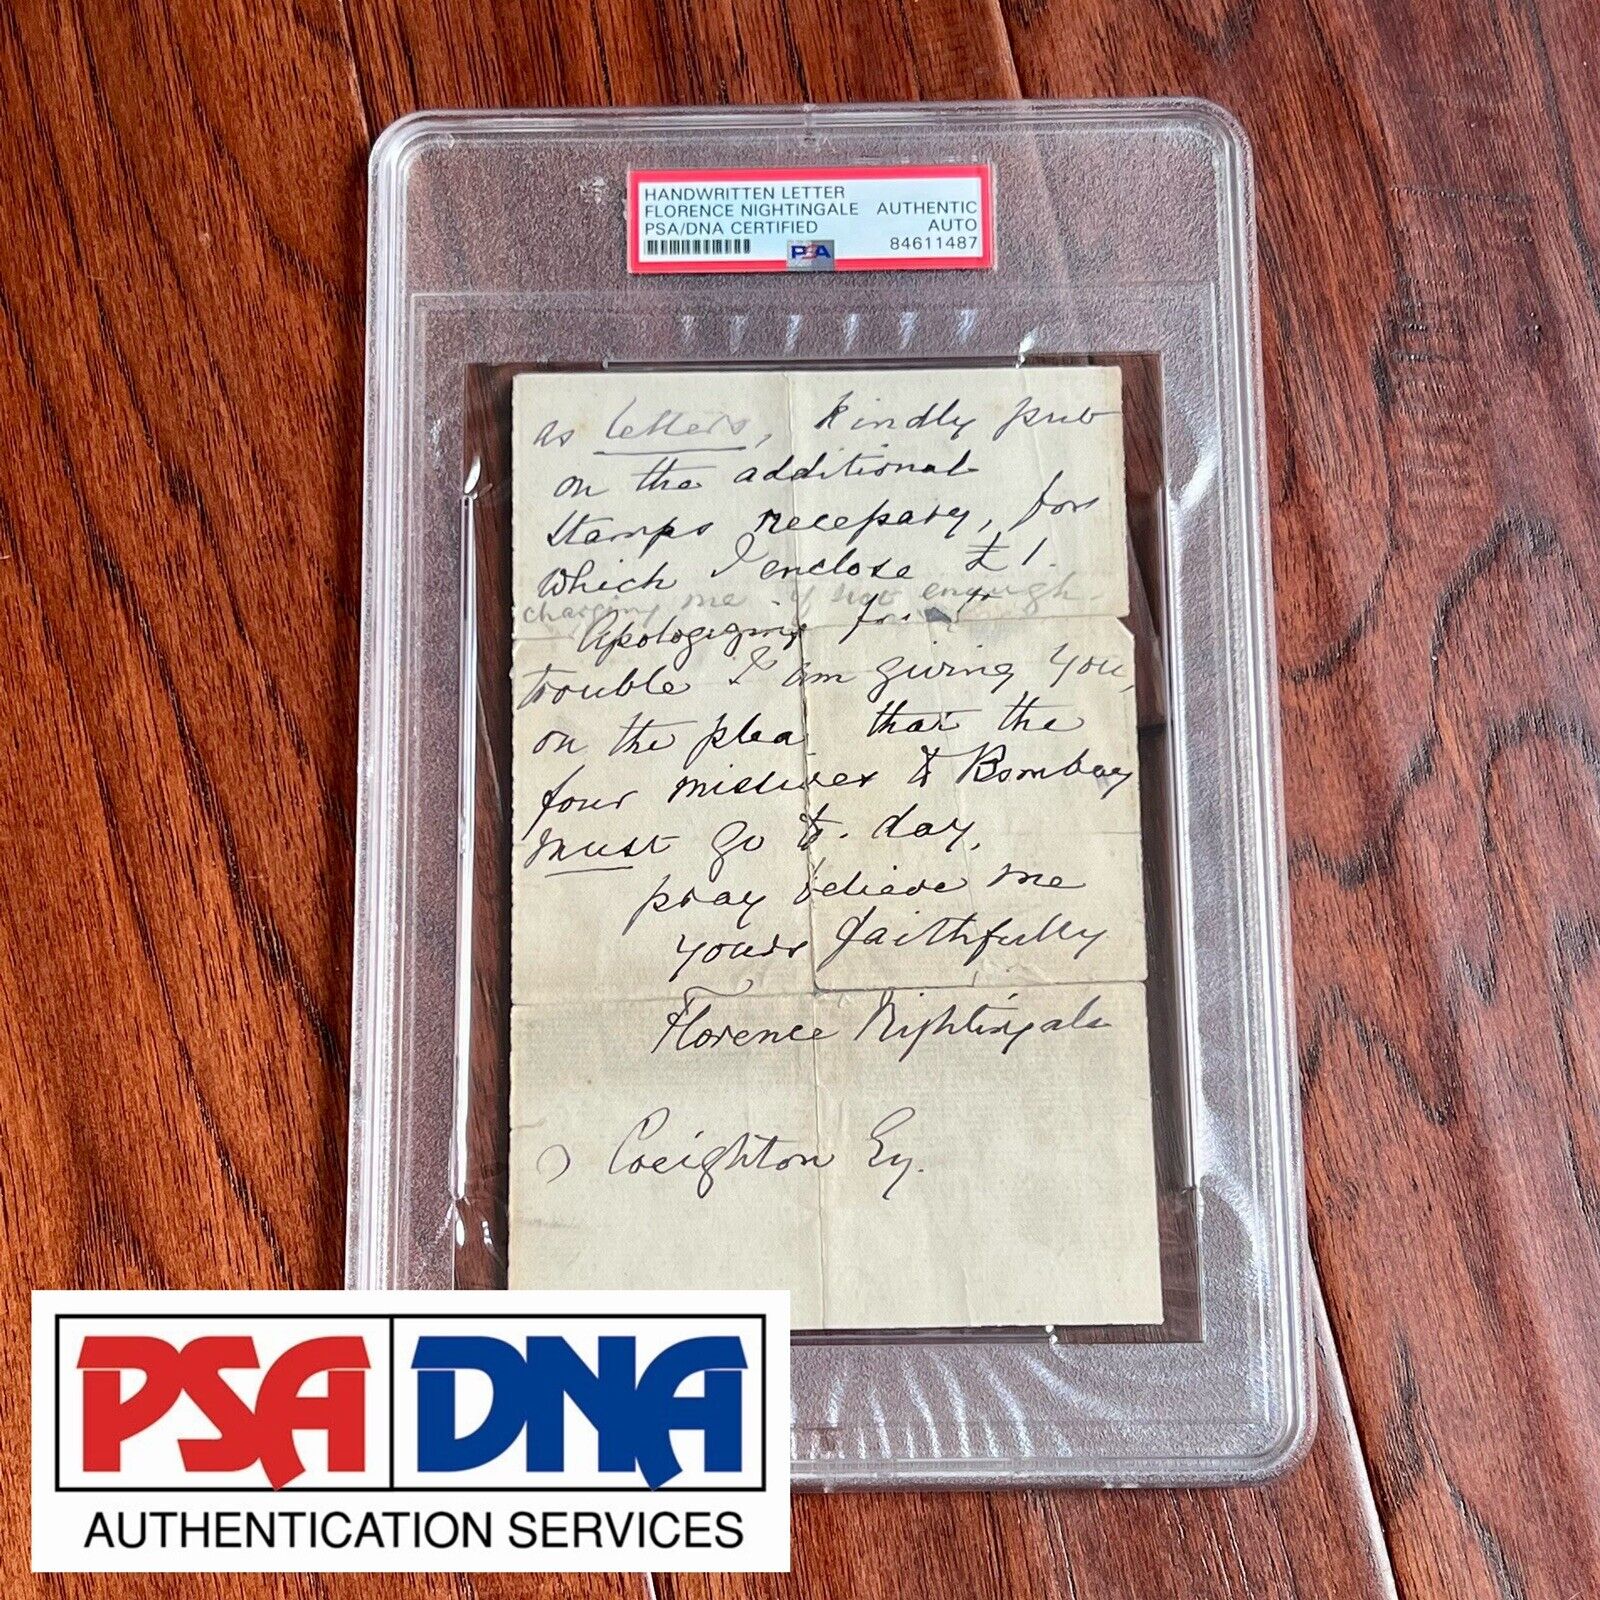 HANDWRITTEN LETTER
FLORENCE NIGHTINGALE AUTHENTIC
PSA/DNA CERTIFIED AUTO
84611487
PSA
as letters, kindly put
on the additional
stamps necessary, for
which I enclose £1.
charging me if not enough.
Apologizing for
trouble I am giving you,
on the plea that the
four to Bombay
must go to-day,
pray believe me
yours faithfully
Florence Nightingale
Creighton Esq.
PSA DNA
AUTHENTICATION SERVICES